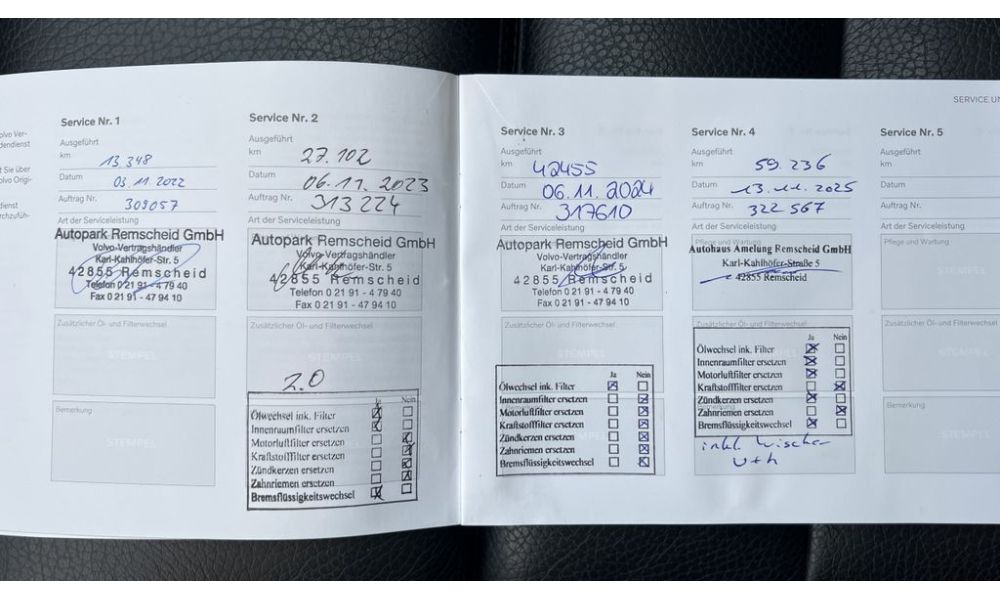 SERVICE UN
olvo Ver-
dendienst
t Sie über
olvo Origi-
dienst
rchzufüh-
Service Nr. 1
Ausgeführt
km 13.348
Datum 03.11.2022
Auftrag Nr. 309057
Art der Serviceleistung
Autopark Remscheid GmbH
Volvo-Vertragshändler
Karl-Kahlhöfer-Str. 5
42855 Remscheid
Telefon 0 21 91 - 4 79 40
Fax 0 21 91 - 47 94 10
Zusätzlicher Öl- und Filterwechsel
STEMPEL
Bemerkung
STEMPEL
Service Nr. 2
Ausgeführt
km 27.102
Datum 06.11.2023
Auftrag Nr. 313224
Art der Serviceleistung
Autopark Remscheid GmbH
Volvo-Vertragshändler
Karl-Kahlhöfer-Str. 5
42855 Remscheid
Telefon 0 21 91 - 4 79 40
Fax 0 21 91 - 47 94 10
Zusätzlicher Öl- und Filterwechsel
STEMPEL
2.0
Ja Nein
Ölwechsel ink. Filter
Innenraumfilter ersetzen
Motorluftfilter ersetzen
Kraftstofffilter ersetzen
Zündkerzen ersetzen
Zahnriemen ersetzen
Bremsflüssigkeitswechsel
Service Nr. 3
Ausgeführt
km 42455
Datum 06.11.2024
Auftrag Nr. 317610
Art der Serviceleistung
Autopark Remscheid GmbH
Volvo-Vertragshändler
Karl-Kahlhöfer-Str. 5
42855 Remscheid
Telefon 0 21 91 - 4 79 40
Fax 0 21 91 - 47 94 10
Zusätzlicher Öl- und Filterwechsel
STEMPEL
Ja Nein
Ölwechsel ink. Filter
Innenraumfilter ersetzen
Motorluftfilter ersetzen
Kraftstofffilter ersetzen
Zündkerzen ersetzen
Zahnriemen ersetzen
Bremsflüssigkeitswechsel
Service Nr. 4
Ausgeführt
km 59.236
Datum 13.11.2025
Auftrag Nr. 322567
Art der Serviceleistung
Pflege und Wartung
Autohaus Amelung Remscheid GmbH
Karl-Kahlhöfer-Straße 5
42855 Remscheid
Zusätzlicher Öl- und Filterwechsel
Ja Nein
Ölwechsel ink. Filter
Innenraumfilter ersetzen
Motorluftfilter ersetzen
Kraftstofffilter ersetzen
Zündkerzen ersetzen
Zahnriemen ersetzen
Bremsflüssigkeitswechsel
inkl. Wischer
v+h
Service Nr. 5
Ausgeführt
km
Datum
Auftrag Nr.
Art der Serviceleistung
Pflege und Wartung
Zusätzlicher Öl- und Filterwechsel
STEMPEL
Bemerkung
STEMPEL